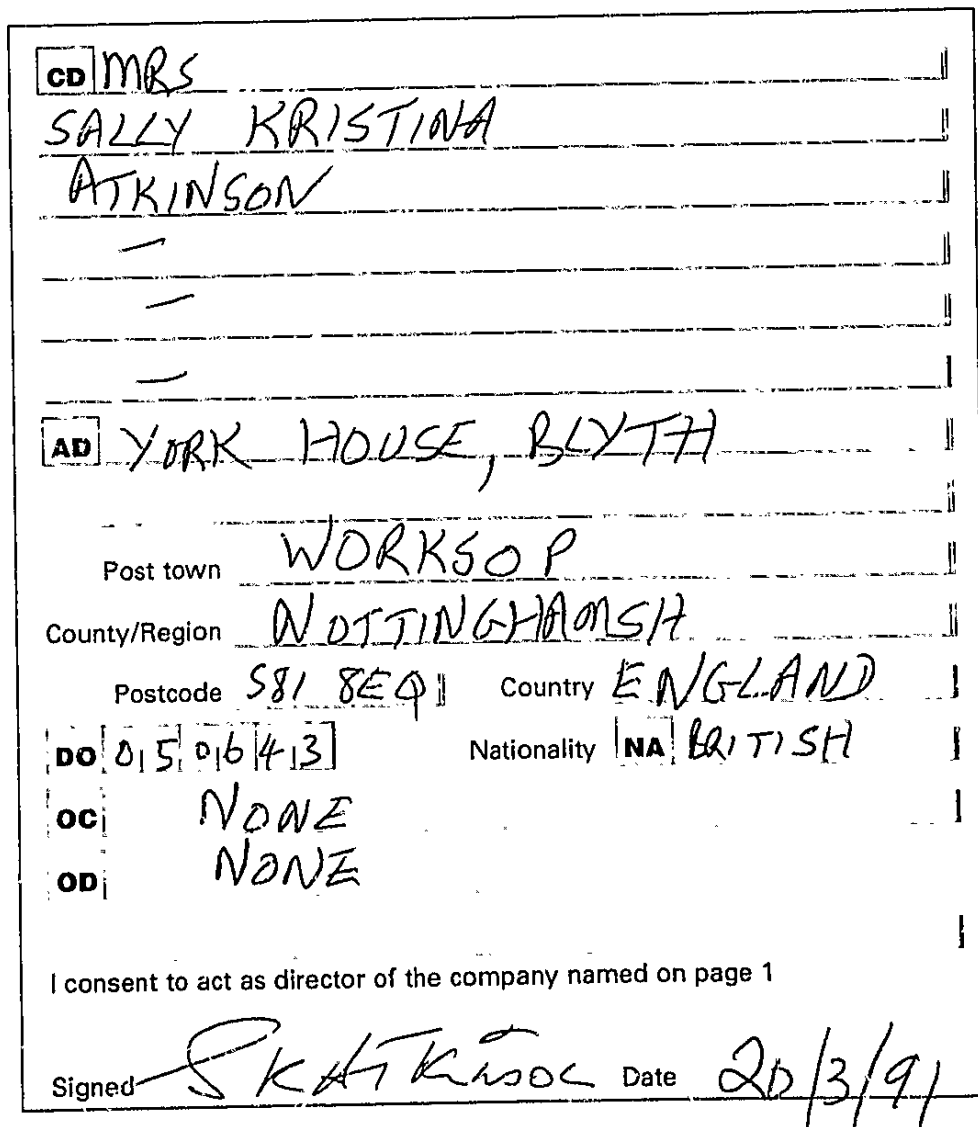 CD MRS
SALLY KRISTINA
ATKINSON
—
—
—
AD YORK HOUSE, BLYTH
Post town WORKSOP
County/Region NOTTINGHAMSH
Postcode S81 8EQ Country ENGLAND
DO 05 06 43 Nationality NA BRITISH
OC NONE
OD NONE
I consent to act as director of the company named on page 1
Signed SKAtkinson Date 20/3/91